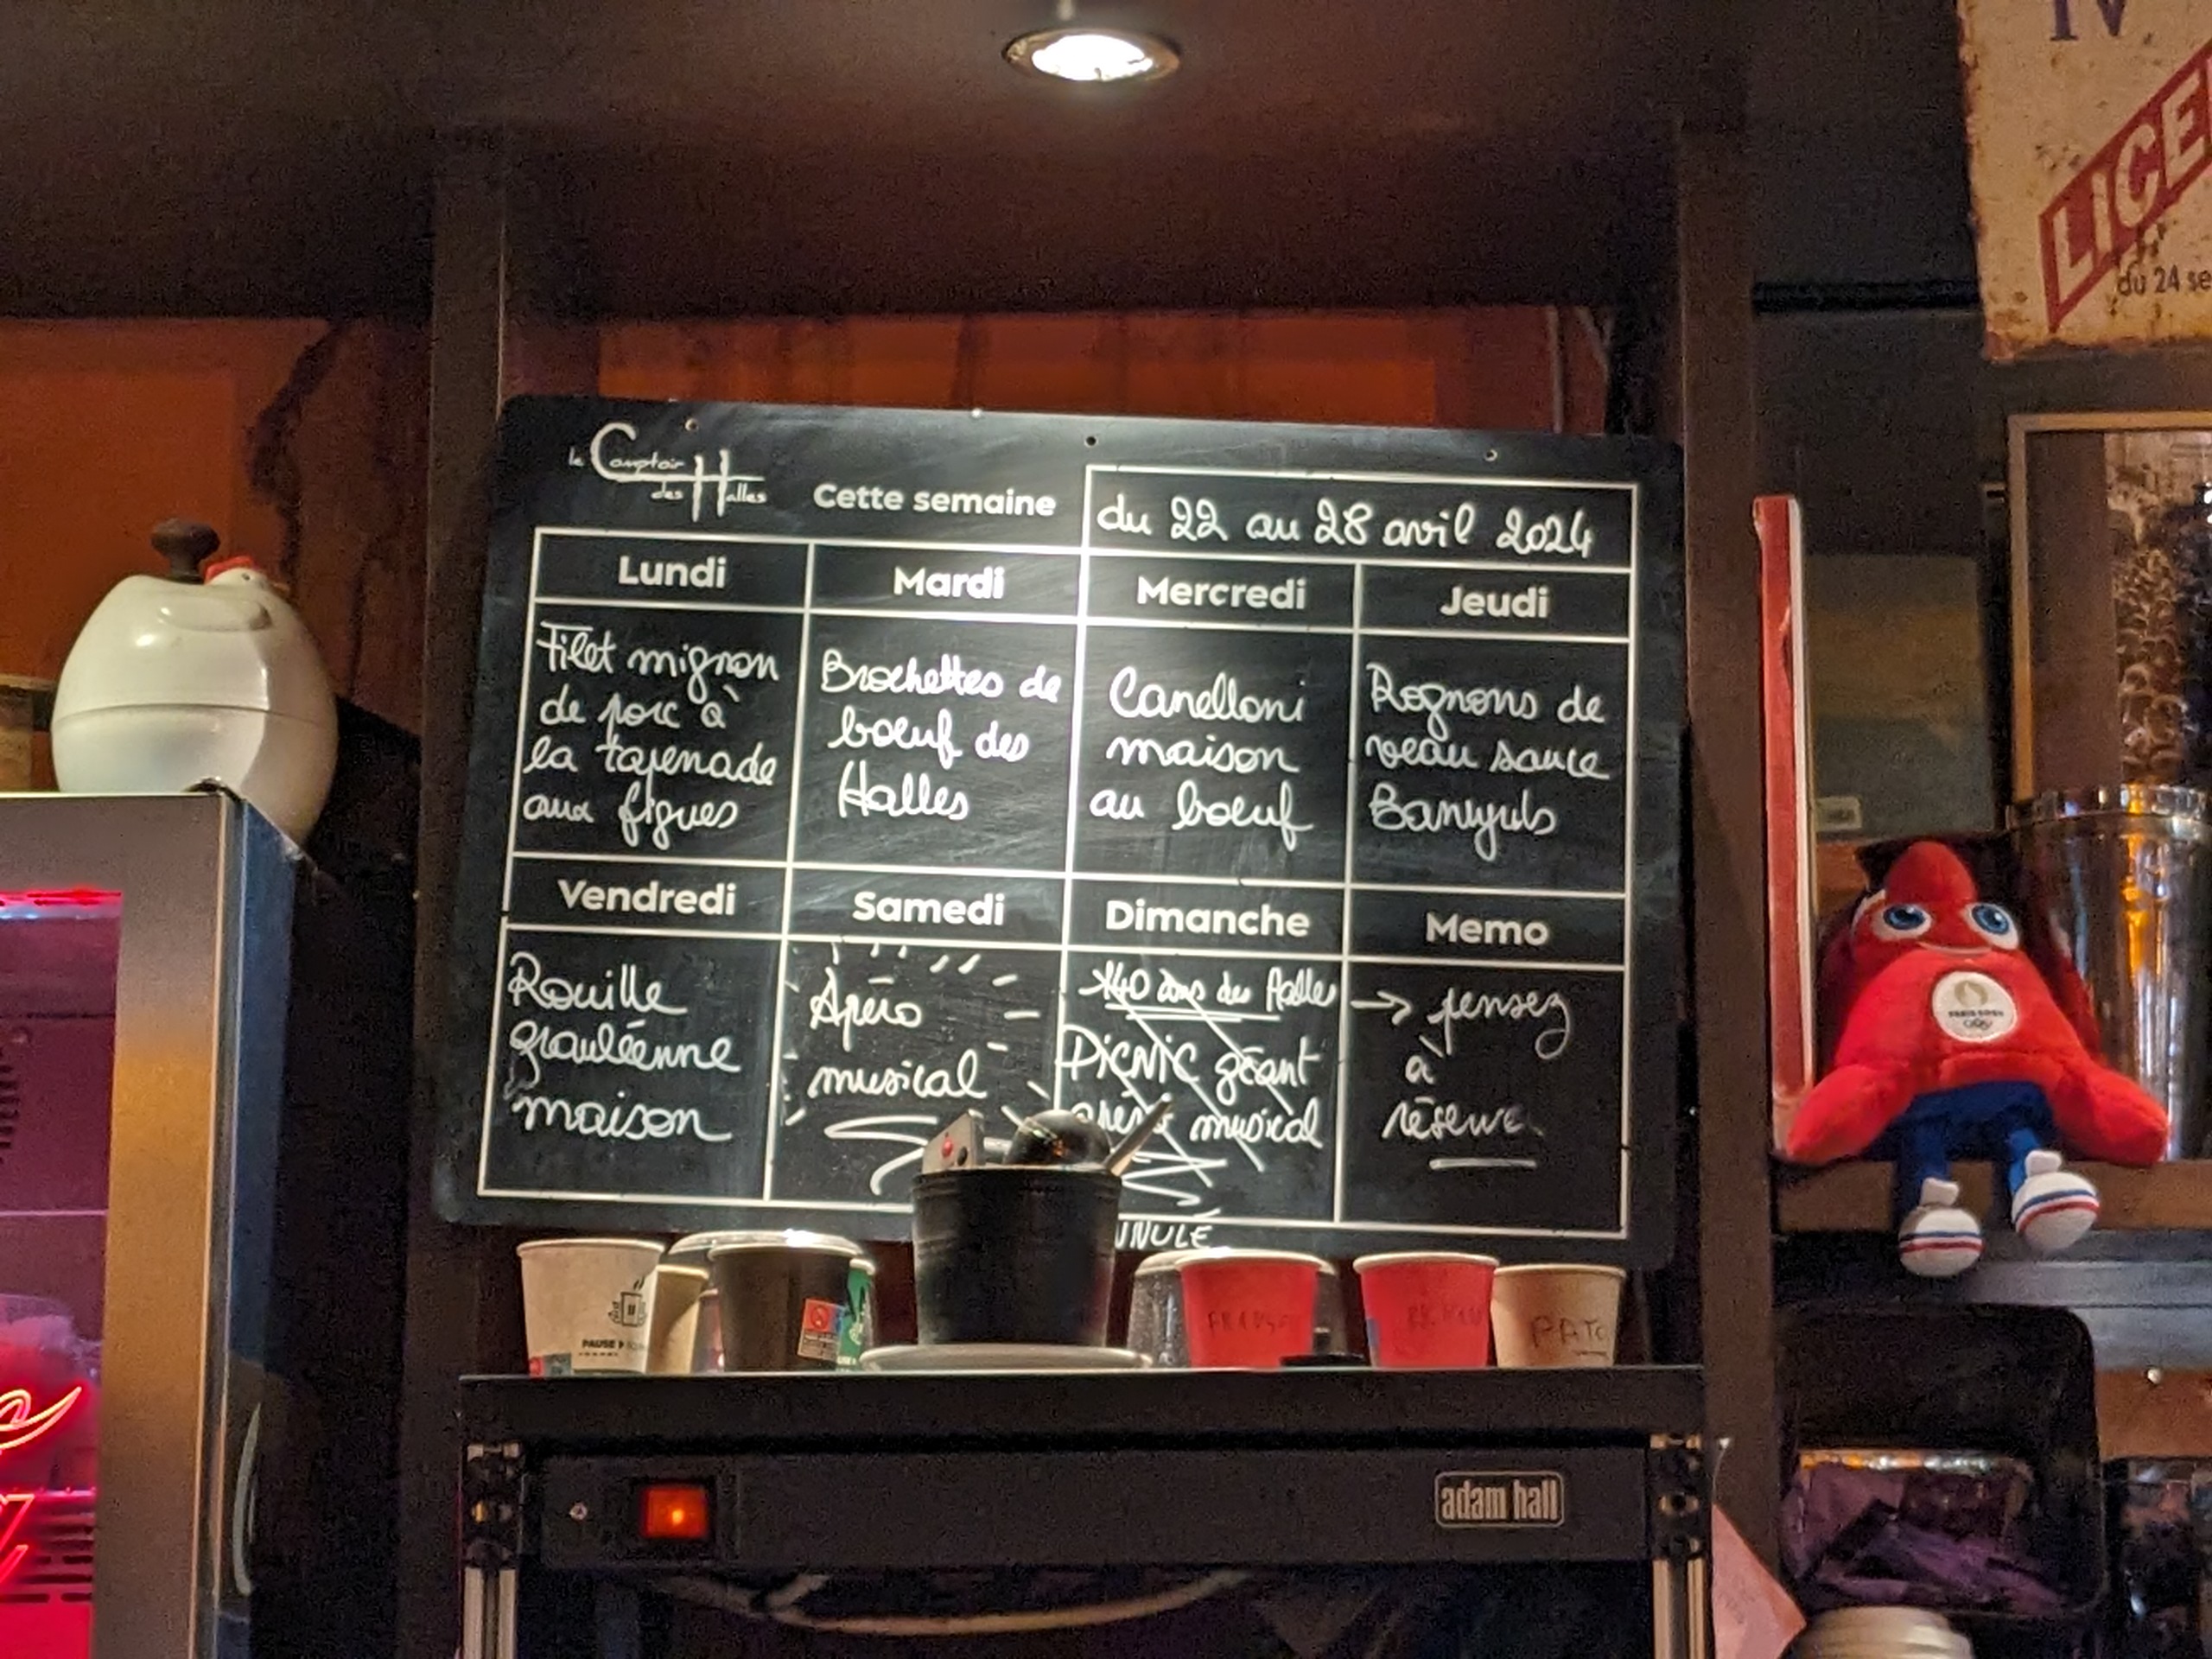 IV
LICE
du 24 se
le Comptoir
des Halles
Cette semaine
du 22 au 28 avril 2024
Lundi
Mardi
Mercredi
Jeudi
Filet mignon
de porc à
la tapenade
aux figues
Brochettes de
boeuf des
Halles
Canelloni
maison
au boeuf
Rognons de
veau sauce
Banyuls
Vendredi
Samedi
Dimanche
Memo
Rouille
grauléenne
maison
Apéro
musical
*40 ans des Halles
PiCNiC géant
apéro musical
NNULÉ
→ pensez
à
réserve
PARIS 2024
PAUSE
PATO
adam hall